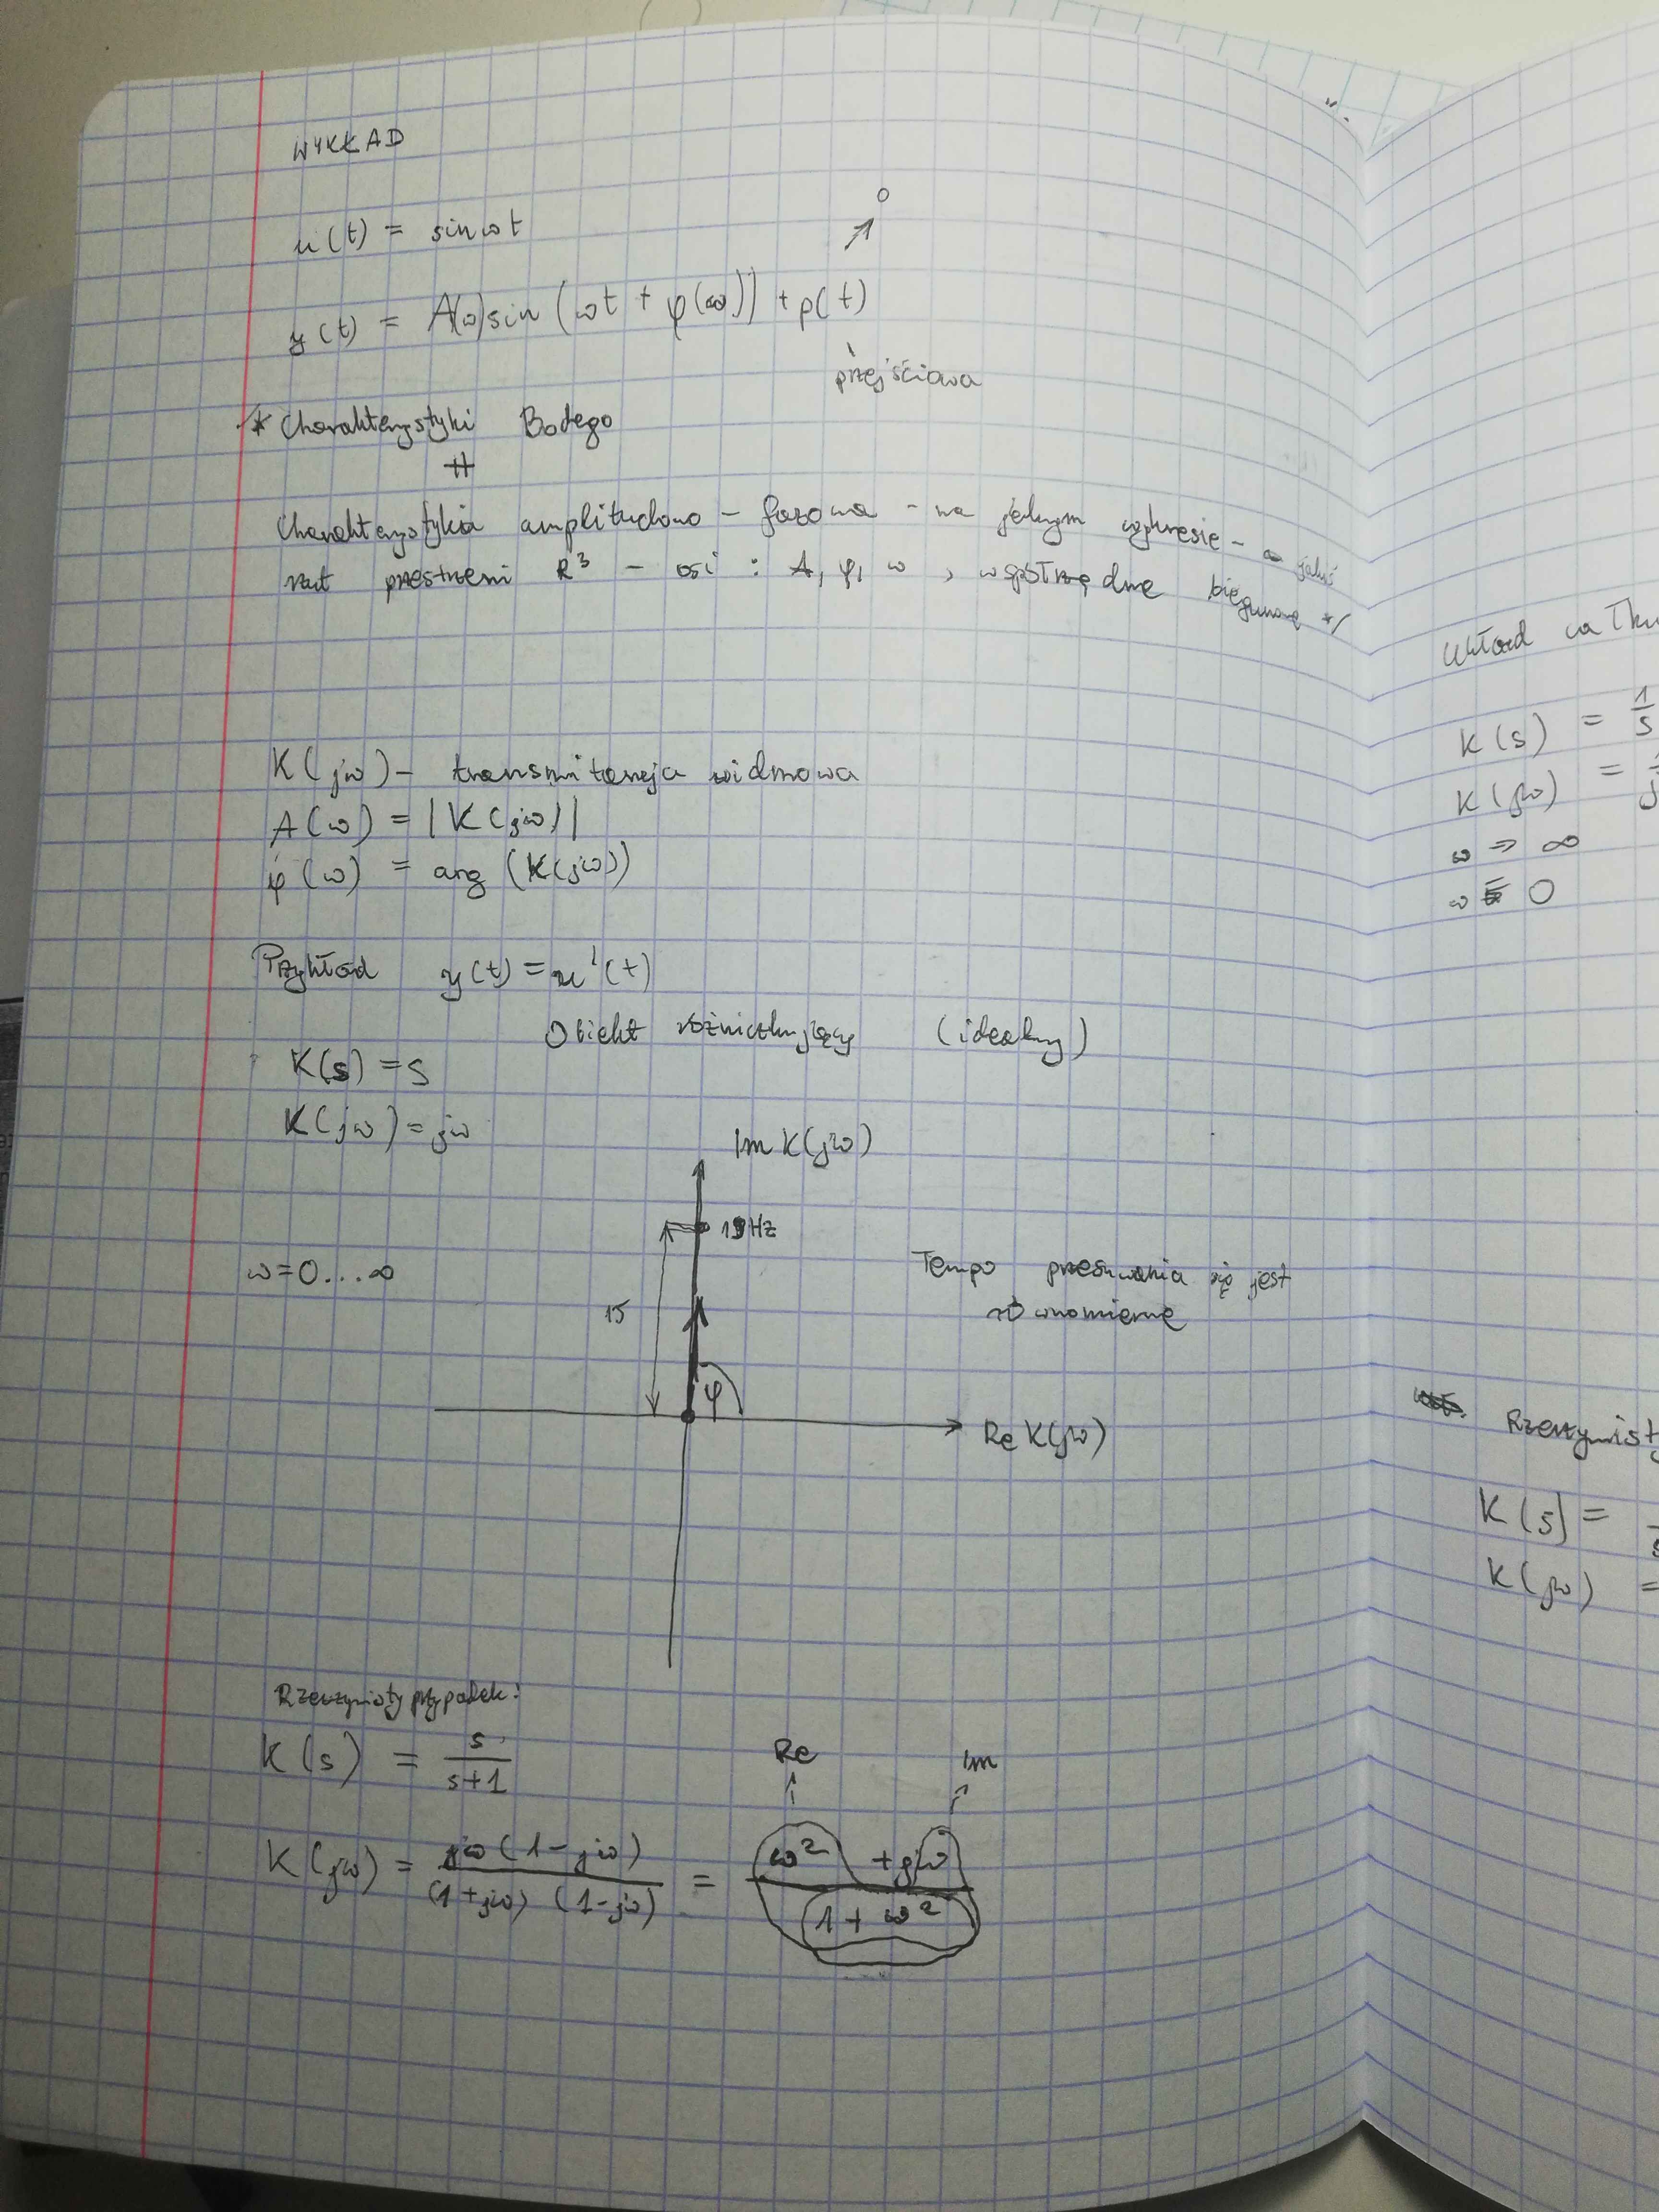 WYKŁAD
u(t) = sin ωt
0
y(t) = A(ω) sin (ωt + φ(ω)) + p(t)
przejściowa
* Charakterystyki Bodego
Charakterystyka amplitudowo - fazowa - na jednym wykresie - jakiś
rzut przestrzeni R³ - osi : A, φ, ω , współrzędne biegunowe */
K(jω) - transmitancja widmowa
A(ω) = |K(jω)|
φ(ω) = arg (K(jω))
Przykład y(t) = u'(t)
Obiekt różniczkujący (idealny)
K(s) = s
K(jω) = jω
Im K(jω)
Hz
ω = 0...∞
15
Tempo przesuwania się jest
równomierne
φ
Re K(jω)
Rzeczywisty przypadek:
K(s) = s/(s+1)
Re Im
K(jω) = jω(1-jω)/((1+jω)(1-jω)) = (ω² + jω)/(1+ω²)
Układ
K(s) = 1/s
K(jω) =
ω → ∞
ω = 0
K(s) =
K(jω) =